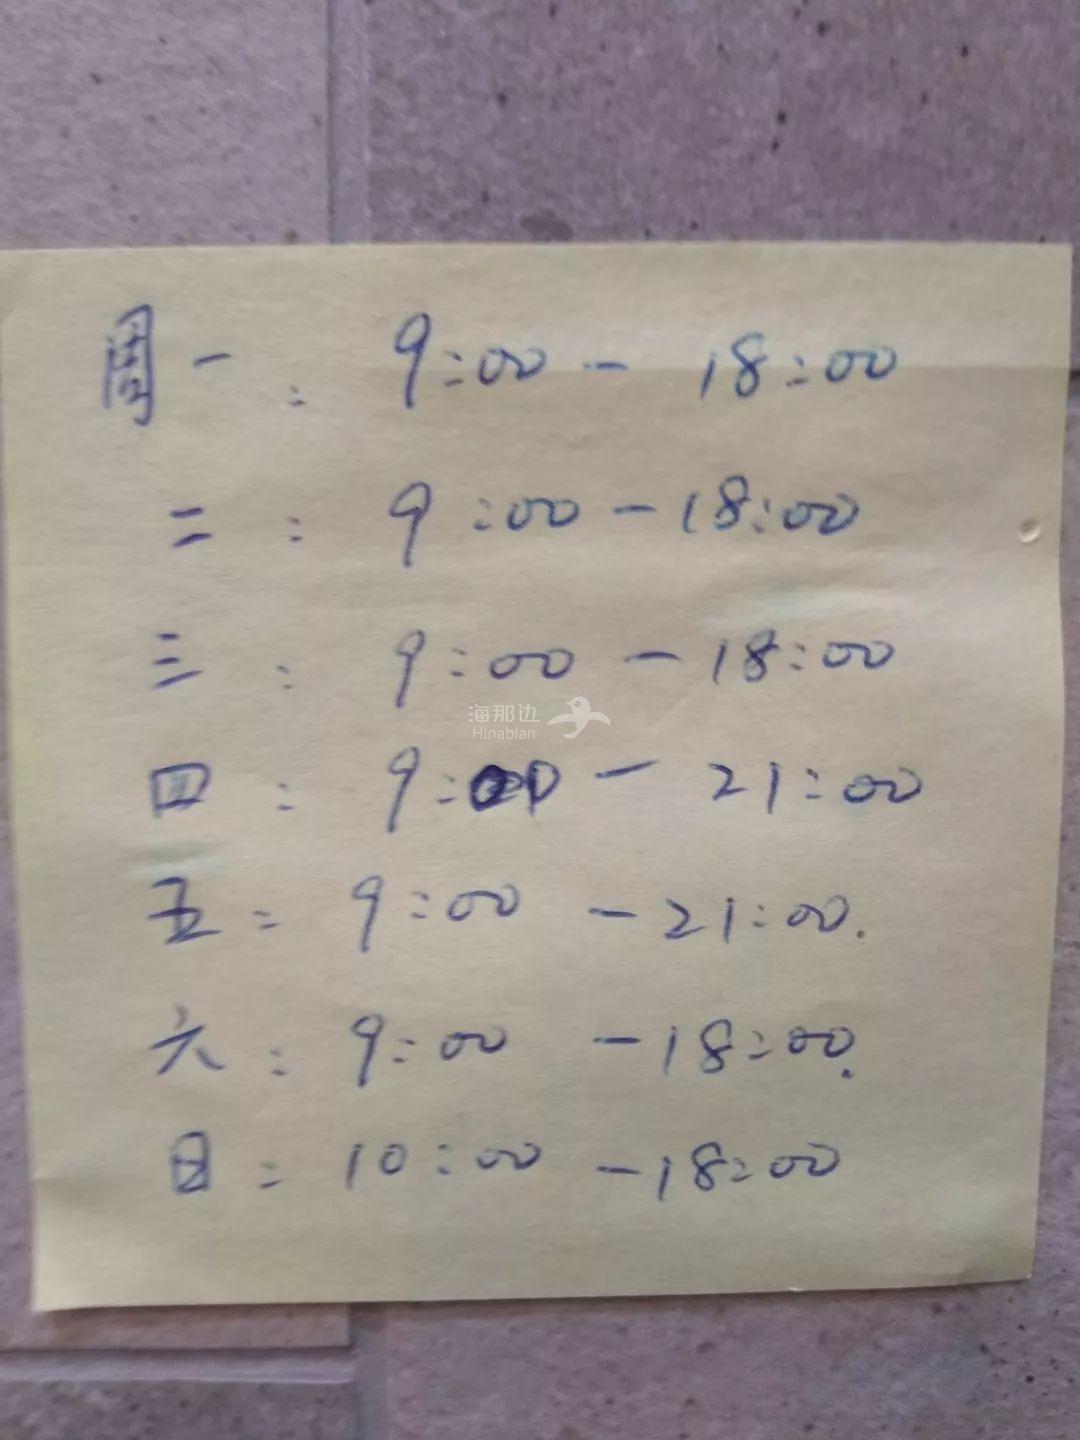 周一: 9:00 - 18:00
二: 9:00 - 18:00
三: 9:00 - 18:00
海那边
Hinabian
四: 9:00 - 21:00
五: 9:00 - 21:00.
六: 9:00 - 18:00.
日: 10:00 - 18:00